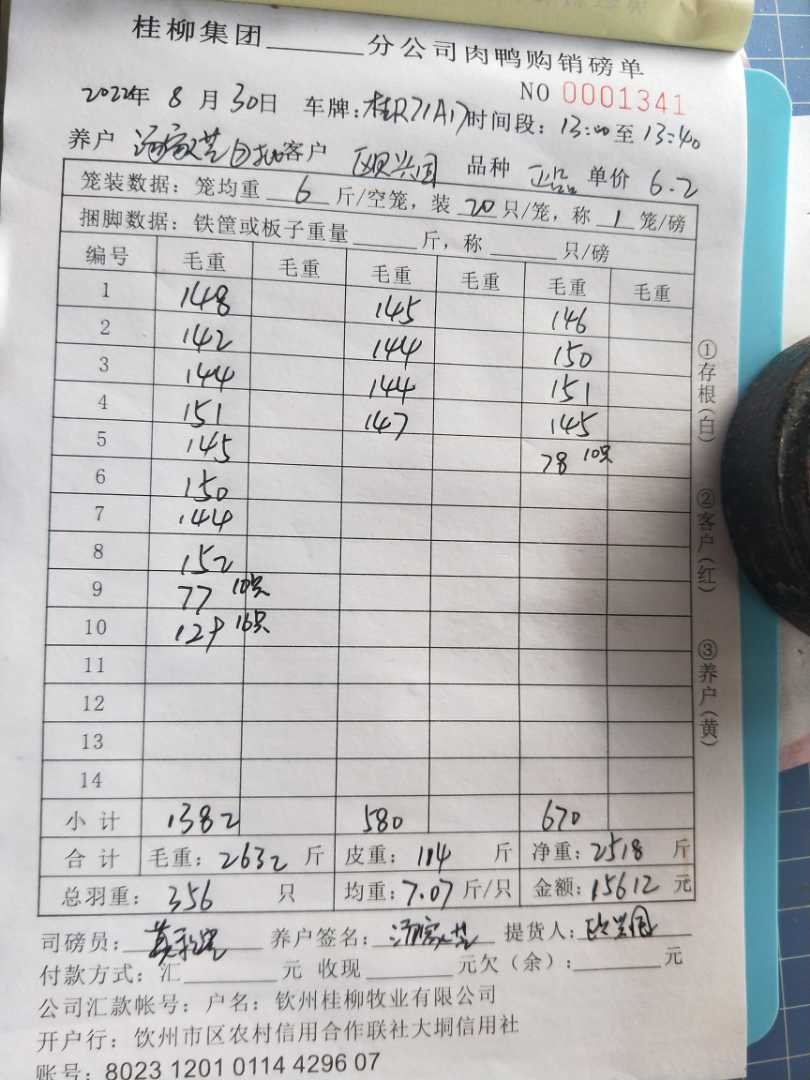 桂柳集团______分公司肉鸭购销磅单
NO 0001341
2022年 8 月 30日 车牌:桂R71A17 时间段:13:00至13:40
养户 客户 欧兴国 品种 正品 单价 6.2
笼装数据:笼均重 6 斤/空笼,装 20 只/笼,称 1 笼/磅
捆脚数据:铁筐或板子重量______斤,称______只/磅
编号 毛重 毛重 毛重 毛重 毛重 毛重
1 148 145 146
2 142 144 150
3 144 144 151
4 151 147 145
5 145 78 10只
6 150
7 144
8 152
9 77 10只
10 129 16只
11
12
13
14
小计 1382 580 670
合计 毛重:2632 斤 皮重:114 斤 净重:2518 斤
总羽重:356 只 均重:7.07斤/只 金额:15612 元
司磅员: 养户签名: 提货人:欧兴国
付款方式:汇______元 收现______元欠(余):______元
公司汇款帐号:户名:钦州桂柳牧业有限公司
开户行:钦州市区农村信用合作联社大垌信用社
账号:8023 1201 0114 4296 07
①存根(白) ②客户(红) ③养户(黄)